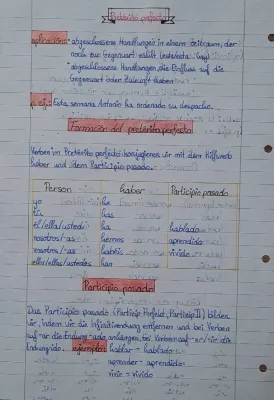 Pretérito perfecto
aplicación: • abgeschlossene Handlungen in einem Zeitraum, der
noch zur Gegenwart zählt
• abgeschlossene Handlungen, die Einfluss auf die
Gegenwart oder Zukunft haben
p. ej.: Esta semana Antonio ha ordenado su despacho.
Formación del pretérito perfecto
Verben im Pretérito perfecto konjugieren wir mit dem Hilfsverb
haber und dem Participio pasado.
Person haber Participio pasado
yo he
tú has
él/ella/usted ha hablado
nosotros/-as hemos aprendido
vosotros/-as habéis vivido
ellos/ellas/ustedes han
Participio pasado
Das Participio pasado (Partizip Perfekt, Partizip II) bilden
wir, indem wir die Infinitivendung entfernen und bei Verben
auf -ar die Endung -ado anhängen, bei Verben auf -er/-ir die
Endung -ido. ejemplo: hablar - hablado
aprender - aprendido
vivir - vivido